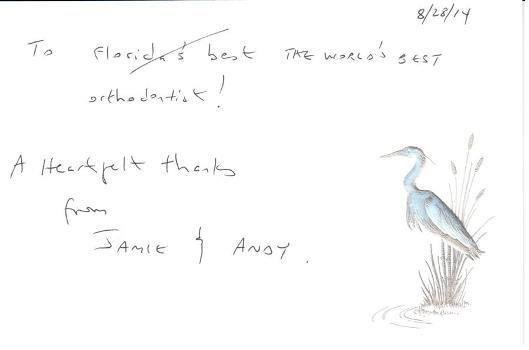 8/28/14
To Florida's best THE WORLD'S BEST
orthodontist!
A Heartfelt thanks
from
JAMIE & ANDY.